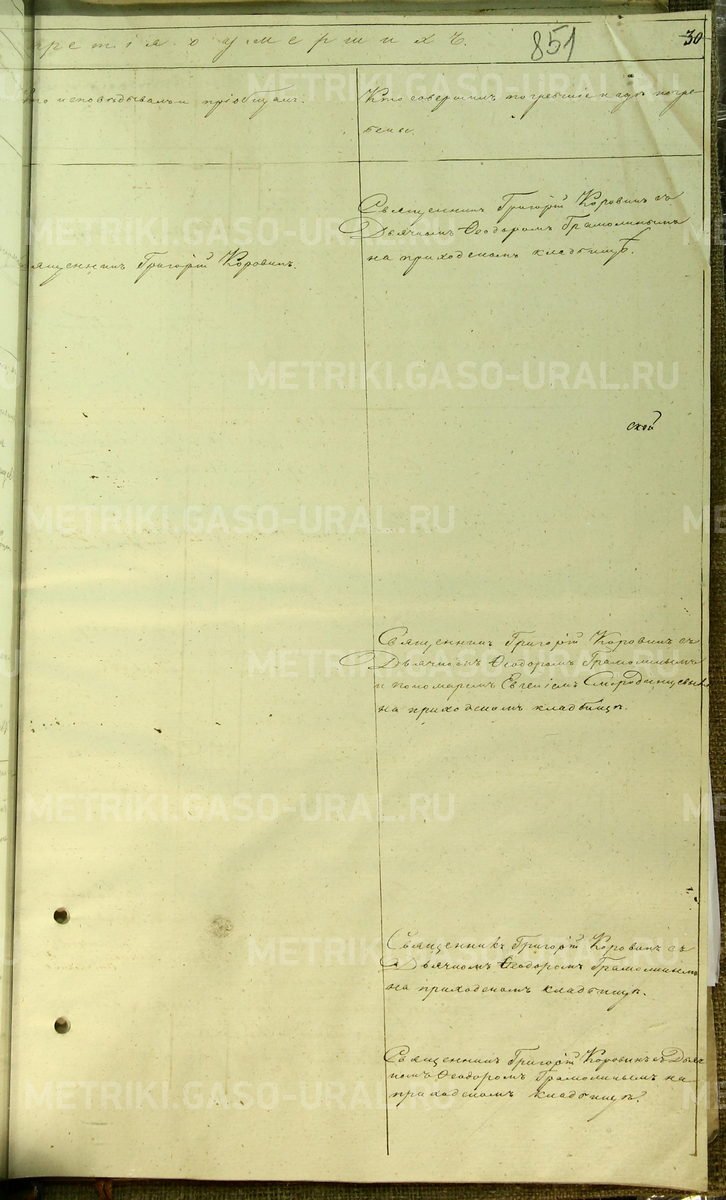 третія о умершихъ.
851
30
Кто исповѣдывалъ и пріобщалъ.
Кто совершилъ погребеніе и гдѣ погре-
бены.
Священникъ Григорій Коровинъ съ
Дьячкомъ Ѳеодоромъ Грамолинымъ
на приходскомъ кладбищѣ.
Священникъ Григорій Коровинъ.
ской
Священникъ Григорій Коровинъ съ
Дьячкомъ Ѳеодоромъ Грамолинымъ
и пономаремъ Евгеніемъ Смородинцевымъ
на приходскомъ кладбищѣ.
Священникъ Григорій Коровинъ съ
Дьячкомъ Ѳеодоромъ Грамолинымъ
на приходскомъ кладбищѣ.
Священникъ Григорій Коровинъ съ Дьяч
комъ Ѳеодоромъ Грамолинымъ на
приходскомъ кладбищѣ.
METRIKI.GASO-URAL.RU